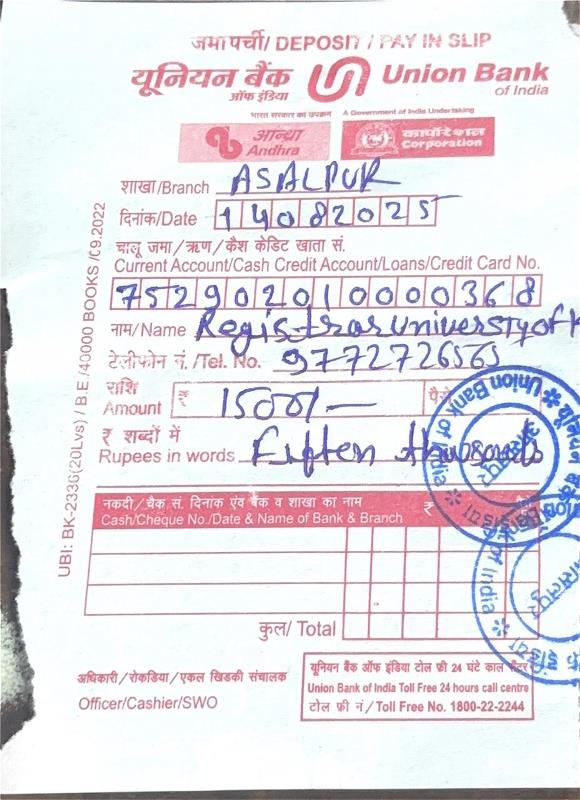 जमा पर्ची/ DEPOSIT / PAY IN SLIP
यूनियन बैंक Union Bank
ऑफ इंडिया of India
भारत सरकार का उपक्रम A Government of India Undertaking
आन्ध्रा Andhra कार्पोरेशन Corporation
शाखा/Branch ASALPUR
दिनांक/Date 14082025
चालू जमा/ऋण/कैश क्रेडिट खाता सं.
Current Account/Cash Credit Account/Loans/Credit Card No.
752902010000368
नाम/Name Registrar University of
टेलीफोन नं./Tel. No. 9772726565
राशि
Amount ₹ 1500/- पैसे
₹ शब्दों में
Rupees in words Fiften thousands
नकदी/चैक सं. दिनांक एंव बैंक व शाखा का नाम ₹
Cash/Cheque No./Date & Name of Bank & Branch
कुल/ Total
अधिकारी/रोकडिया/एकल खिडकी संचालक
Officer/Cashier/SWO
यूनियन बैंक ऑफ इंडिया टोल फ्री 24 घंटे काल सेंटर
Union Bank of India Toll Free 24 hours call centre
टोल फ्री नं/Toll Free No. 1800-22-2244
UBI: BK-2336(20Lvs) / B.E./40000 BOOKS /09.2022
Union Bank of India
असलपुर